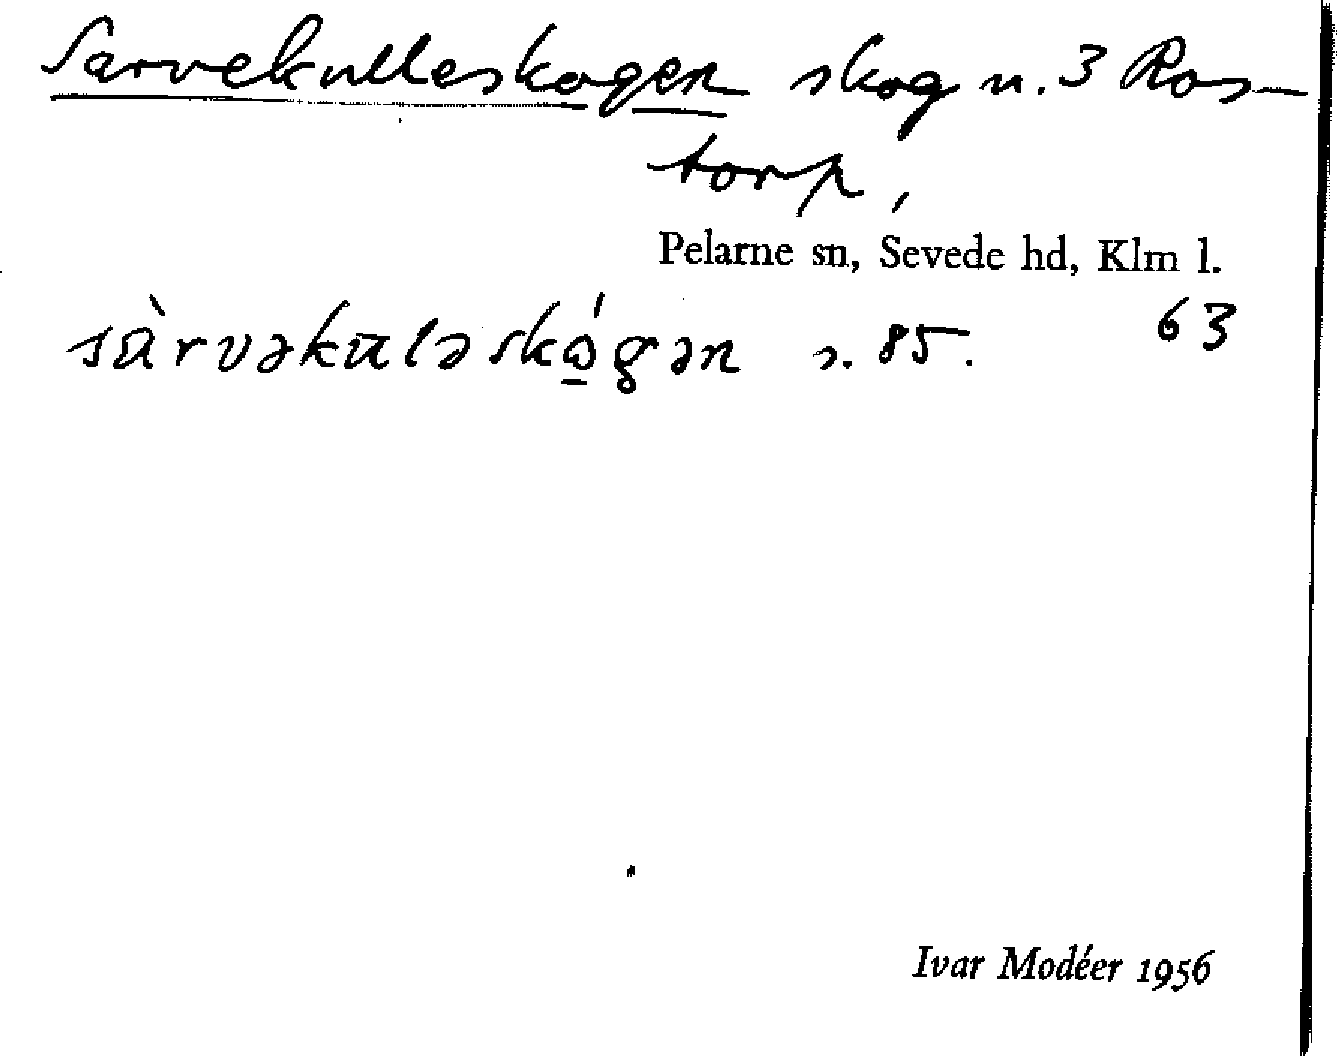 Sarvekulleskogen skog u. 3 Ros-
torp,
Pelarne sn, Sevede hd, Klm l.
63
sàrvəkuləskó̲gən s. 85.
Ivar Modéer 1956